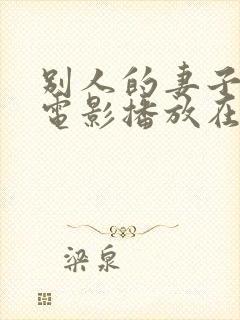 别人的妻子
电影播放在
梁泉